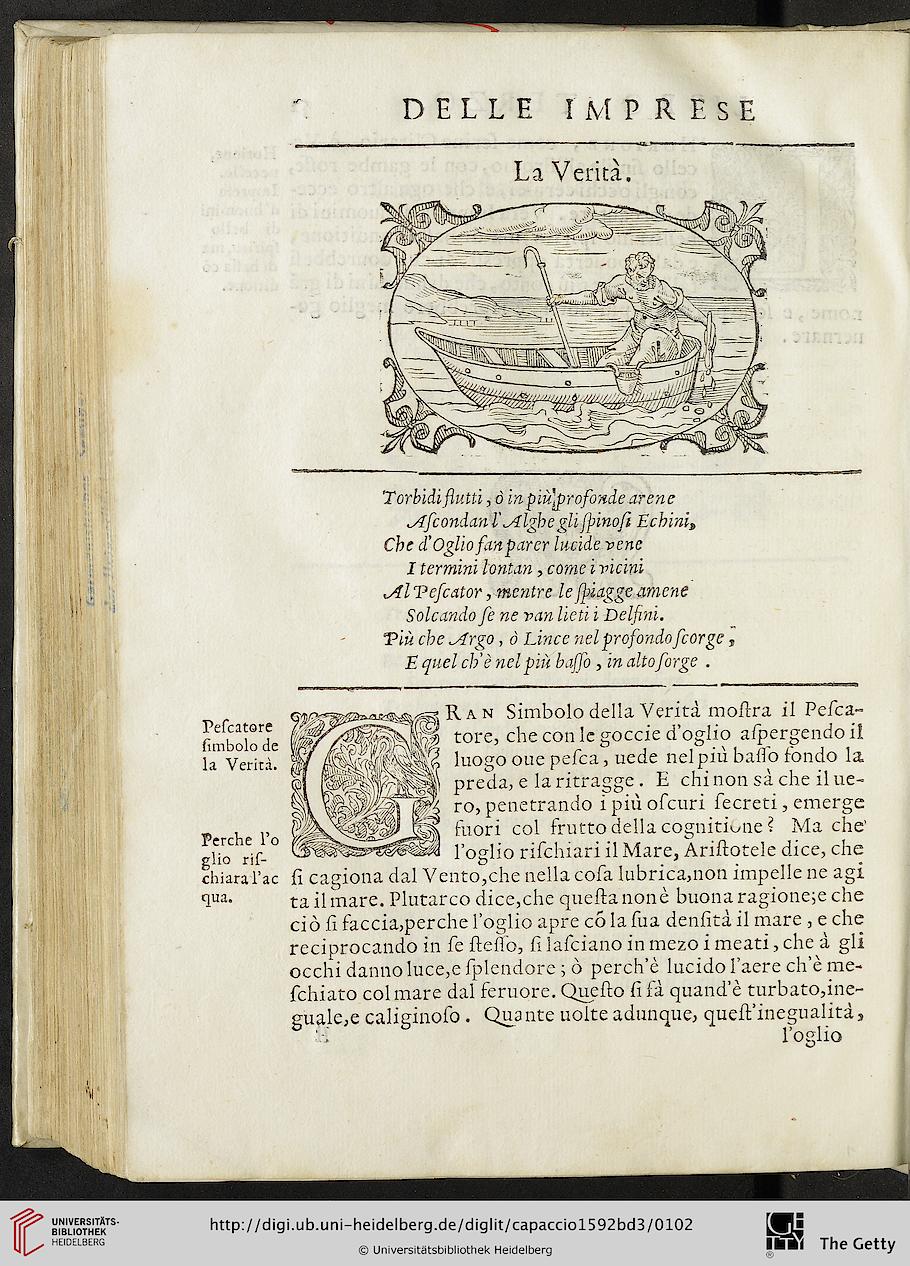 DELLE IMPRESE
La Verità.
Torbidi flutti, ò in più profonde arene
Aſcondan l'Alghe gli ſpinoſi Echini,
Che d'Oglio fan parer lucide vene
I termini lontan, come i vicini
Al Peſcator, mentre le ſpiagge amene
Solcando ſe ne van lieti i Delfini.
Più che Argo, ò Lince nel profondo ſcorge;
E quel ch'è nel più baſſo, in alto ſorge.
Peſcatore
ſimbolo de
la Verità.
Perche l'o
glio riſ-
chiara l'ac
qua.
GRAN Simbolo della Verità moſtra il Peſca-
tore, che con le goccie d'oglio aſpergendo il
luogo oue peſca, uede nel più baſſo fondo la
preda, e la ritragge. E chi non sà che il ue-
ro, penetrando i più oſcuri ſecreti, emerge
fuori col frutto della cognitione? Ma che
l'oglio riſchiari il Mare, Ariſtotele dice, che
ſi cagiona dal Vento, che nella coſa lubrica, non impelle ne agi
ta il mare. Plutarco dice, che queſta non è buona ragione; e che
ciò ſi faccia, perche l'oglio apre cõ la ſua denſità il mare, e che
reciprocando in ſe ſteſſo, ſi laſciano in mezo i meati, che à gli
occhi danno luce, e ſplendore; ò perch'è lucido l'aere ch'è me-
ſchiato col mare dal feruore. Queſto ſi fà quand'è turbato, ine-
guale, e caliginoſo. Quante uolte adunque, queſt'inegualità,
l'oglio
UNIVERSITÄTS-
BIBLIOTHEK
HEIDELBERG
http://digi.ub.uni-heidelberg.de/diglit/capaccio1592bd3/0102
© Universitätsbibliothek Heidelberg
The Getty